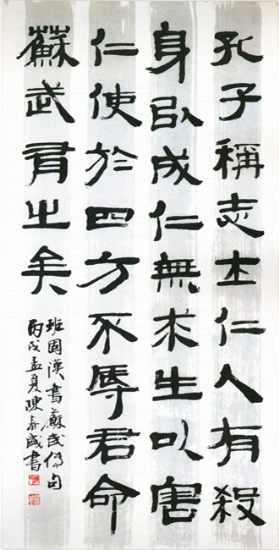 孔子稱志士仁人有殺
身以成仁無求生以害
仁使於四方不辱君命
蘇武有之矣
班固漢書蘇武傳句
丙戌孟夏陳書